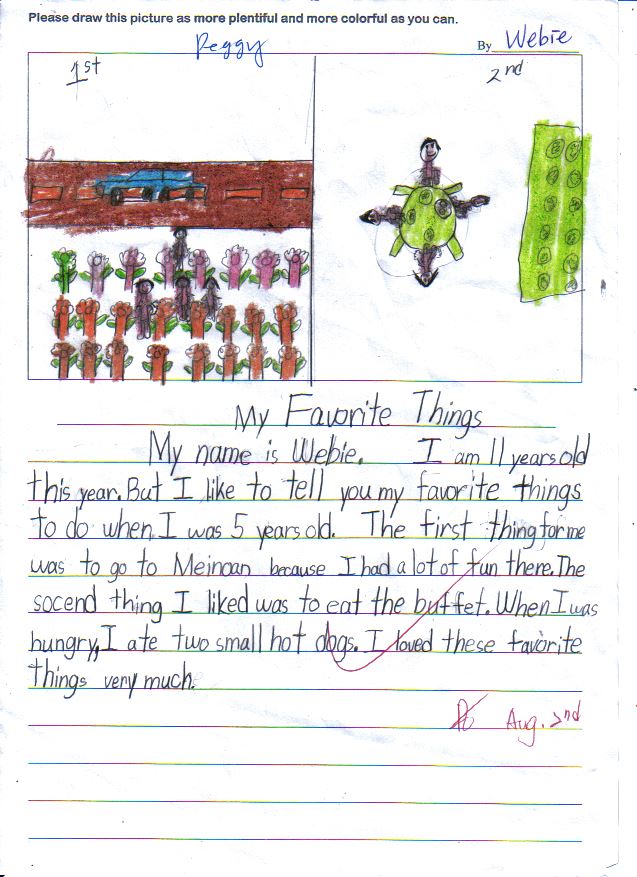 Please draw this picture as more plentiful and more colorful as you can.
Peggy
By Webie
1st
2nd
My Favorite Things
My name is Webie. I am 11 years old
this year. But I like to tell you my favorite things
to do when I was 5 years old. The first thing for me
was to go to Meinoan because I had a lot of fun there. The
socend thing I liked was to eat the buffet. When I was
hungry, I ate two small hot dogs. I loved these favorite
things very much.
Aug. 2nd